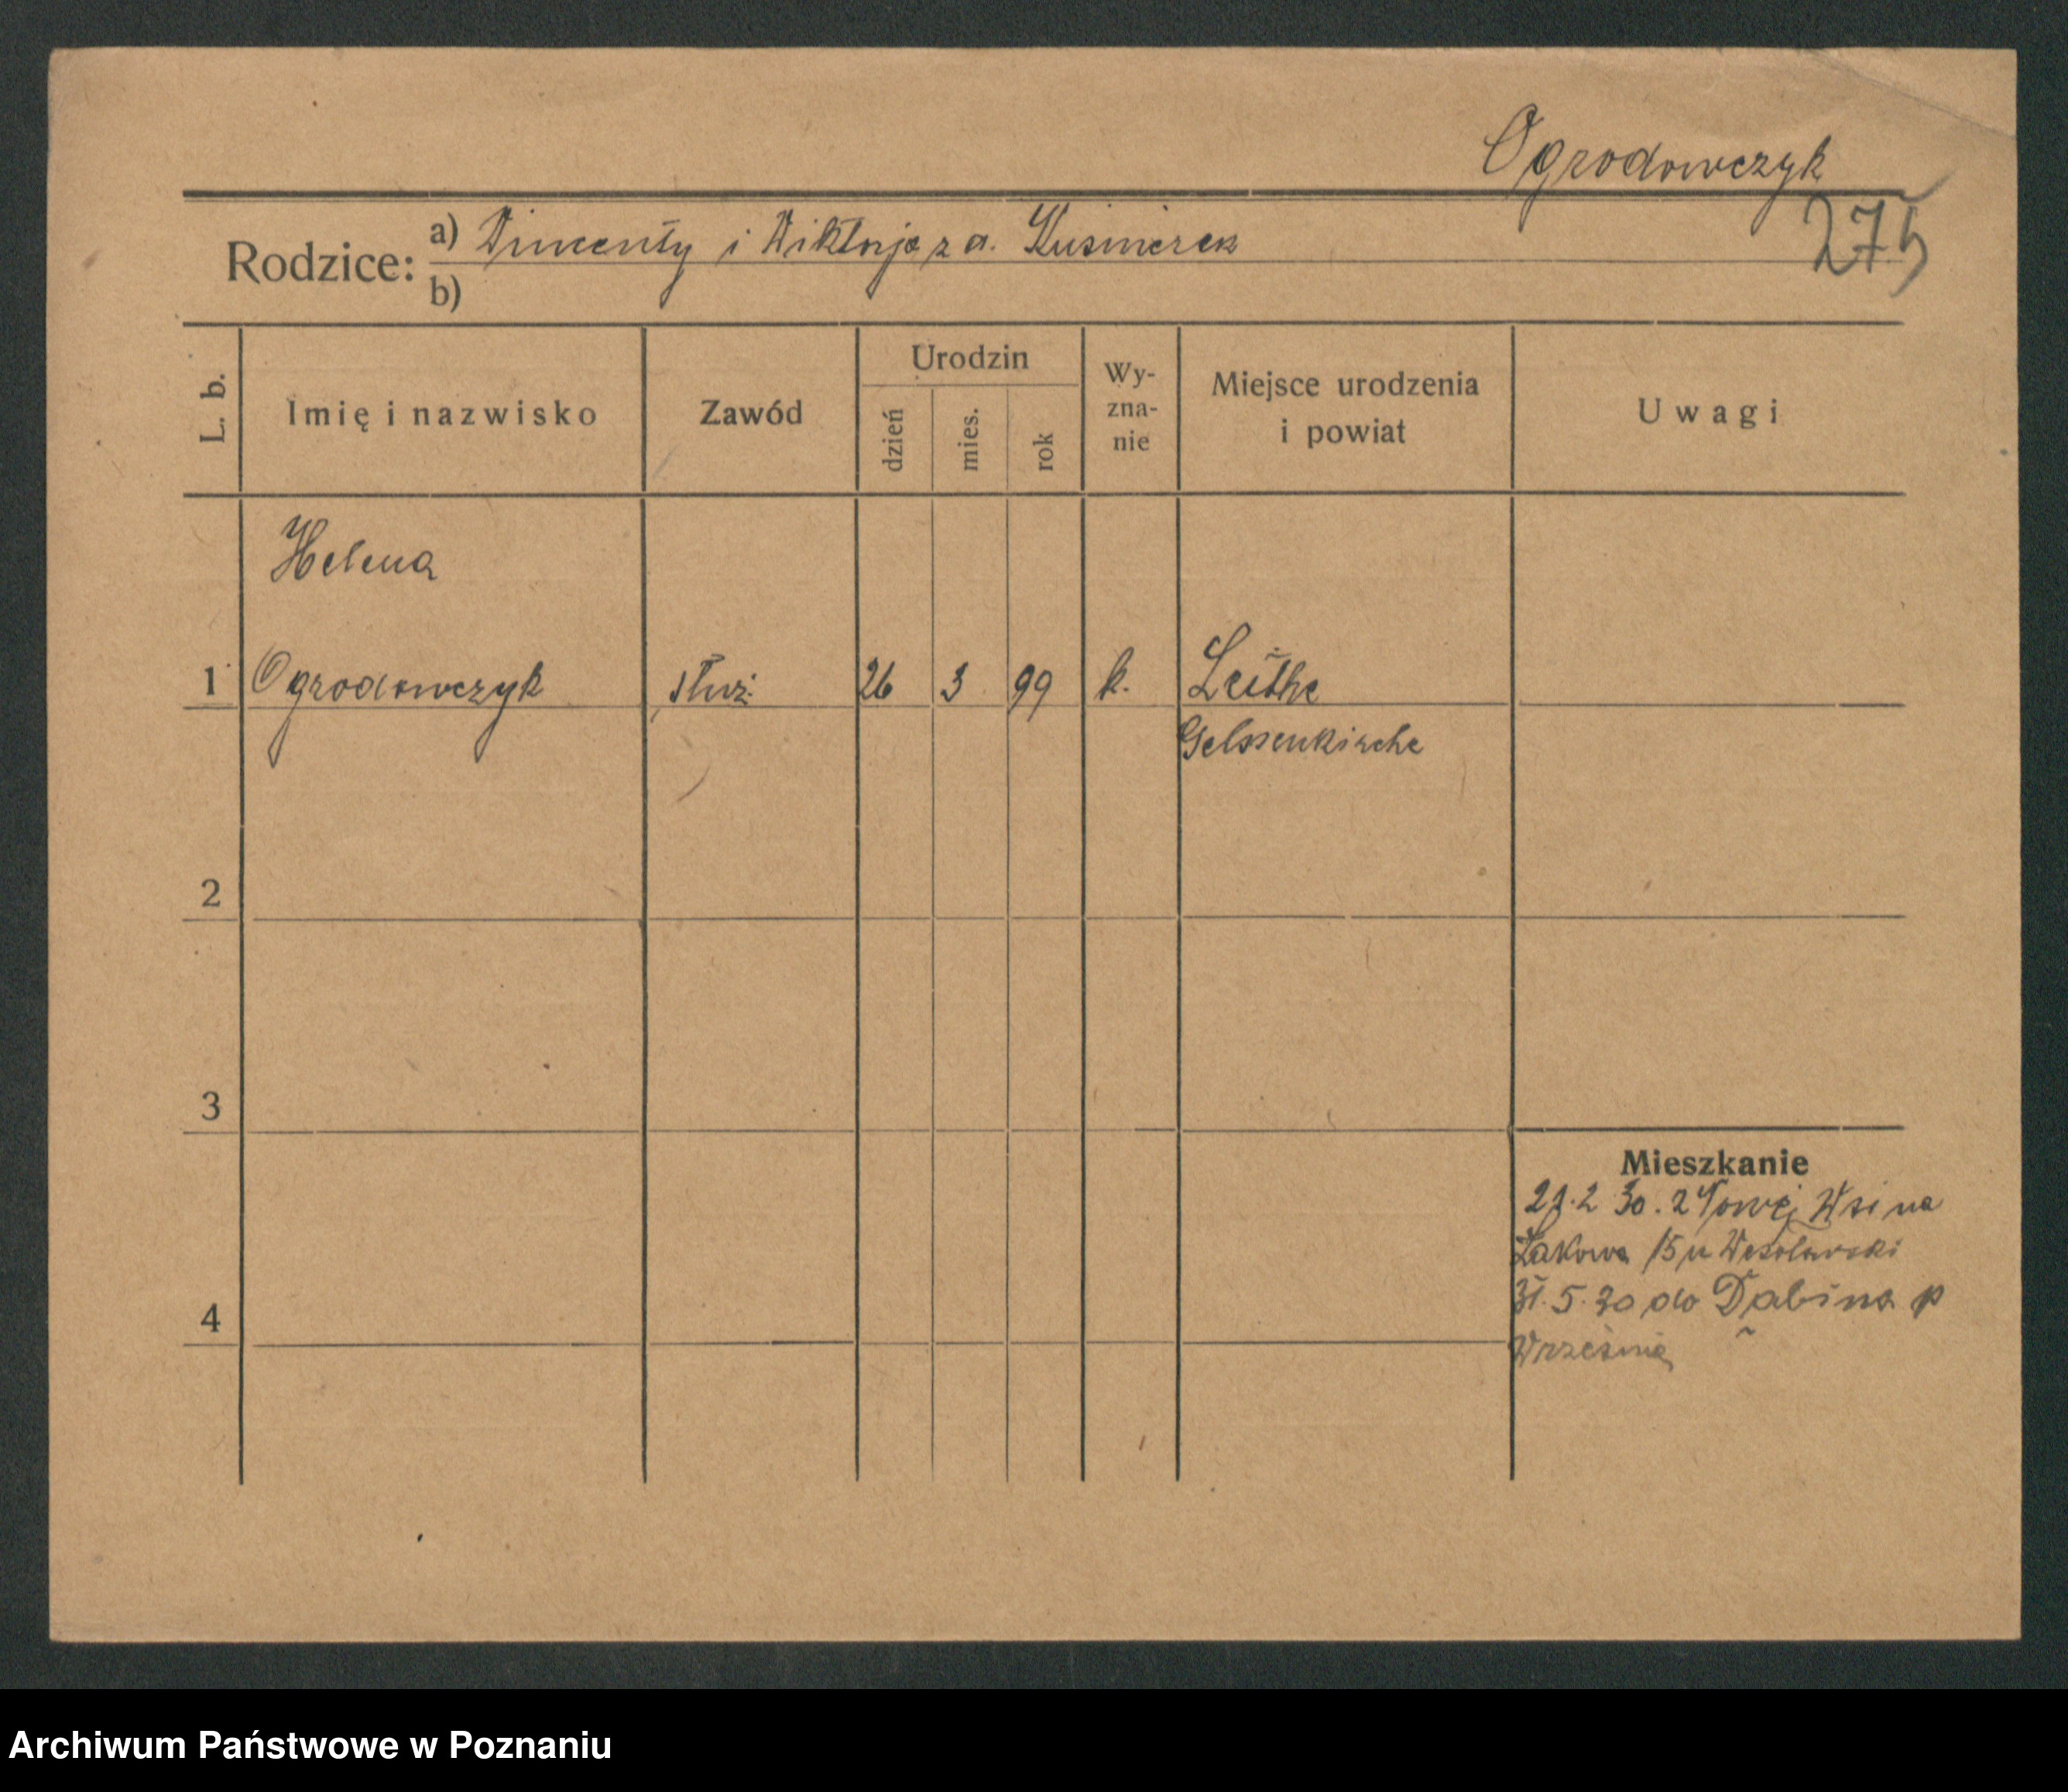 Ogrodowczyk
275
Rodzice: a) Wincenty i Wiktorja z d. Kusmierek
b)
L. b.
Imię i nazwisko
Zawód
Urodzin
dzień
mies.
rok
Wy-
zna-
nie
Miejsce urodzenia
i powiat
Uwagi
Helena
1 Ogrodowczyk służ. 26 3 99 k. Leithe
Gelssenkirche
2
3
4
Mieszkanie
21.2 30. z Nowej Wsi na
Łąkowa 15 u Wesołowski
31.5.30 do Dąbina p
Września
Archiwum Państwowe w Poznaniu